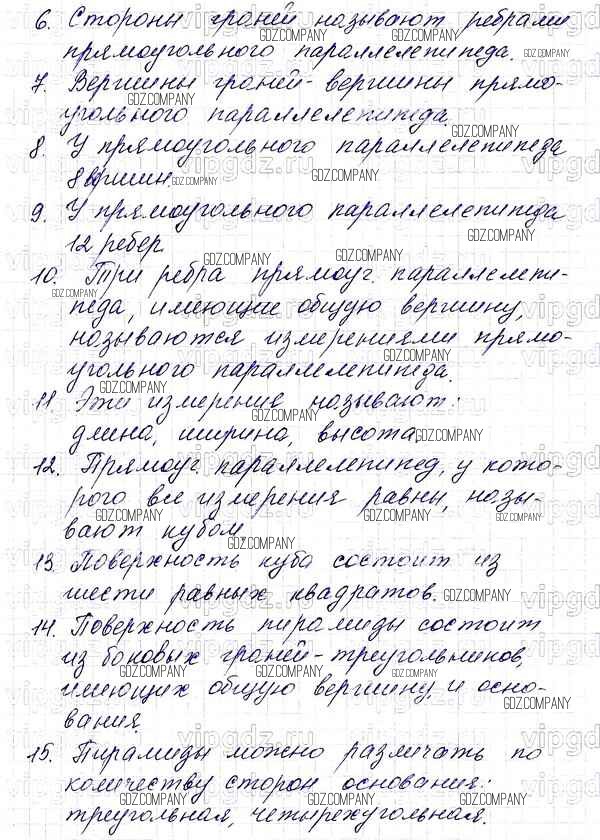 6. Стороны граней называют ребрами
прямоугольного параллелепипеда.
7. Вершины граней - вершины прямо-
угольного параллелепипеда.
8. У прямоугольного параллелепипеда
8 вершин.
9. У прямоугольного параллелепипеда
12 ребер.
10. Три ребра прямоуг. параллелепи-
педа, имеющие общую вершину,
называются измерениями прямо-
угольного параллелепипеда.
11. Эти измерения называют:
длина, ширина, высота.
12. Прямоуг. параллелепипед, у кото-
рого все измерения равны, назы-
вают кубом.
13. Поверхность куба состоит из
шести равных квадратов.
14. Поверхность пирамиды состоит
из боковых граней - треугольников,
имеющих общую вершину и осно-
вания.
15. Пирамиды можно различать по
количеству сторон основания:
треугольная, четырехугольная.